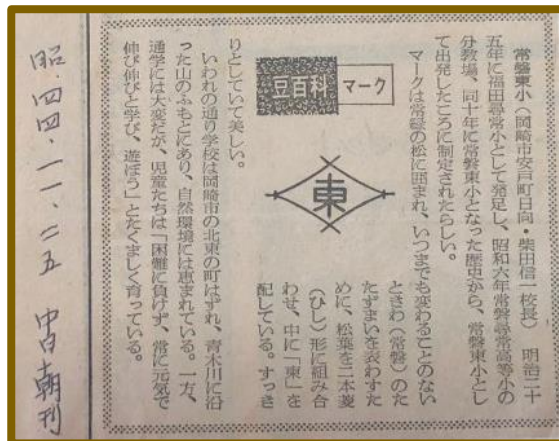 豆百科 マーク
東
常磐東小(岡崎市安戸町日向・柴田信一校長) 明治二十
五年に福田尋常小として発足し、昭和六年常磐尋常高等小の
分教場、同十年に常磐東小となった歴史から、常磐東小とし
て出発したころに制定されたらしい。
マークは常緑の松に囲まれ、いつまでも変わることのない
ときわ(常磐)のた
たずまいを表わすた
めに、松葉を二本菱
(ひし)形に組み合
わせ、中に「東」を
配している。すっき
りとしていて美しい。
いわれの通り学校は岡崎市の北東の町はずれ、青木川に沿
った山のふもとにあり、自然環境には恵まれている。一方、
通学には大変だが、児童たちは「困難に負けず、常に元気で
伸び伸びと学び、遊ぼう」とたくましく育っている。
昭・四四・一一・二五 中日朝刊